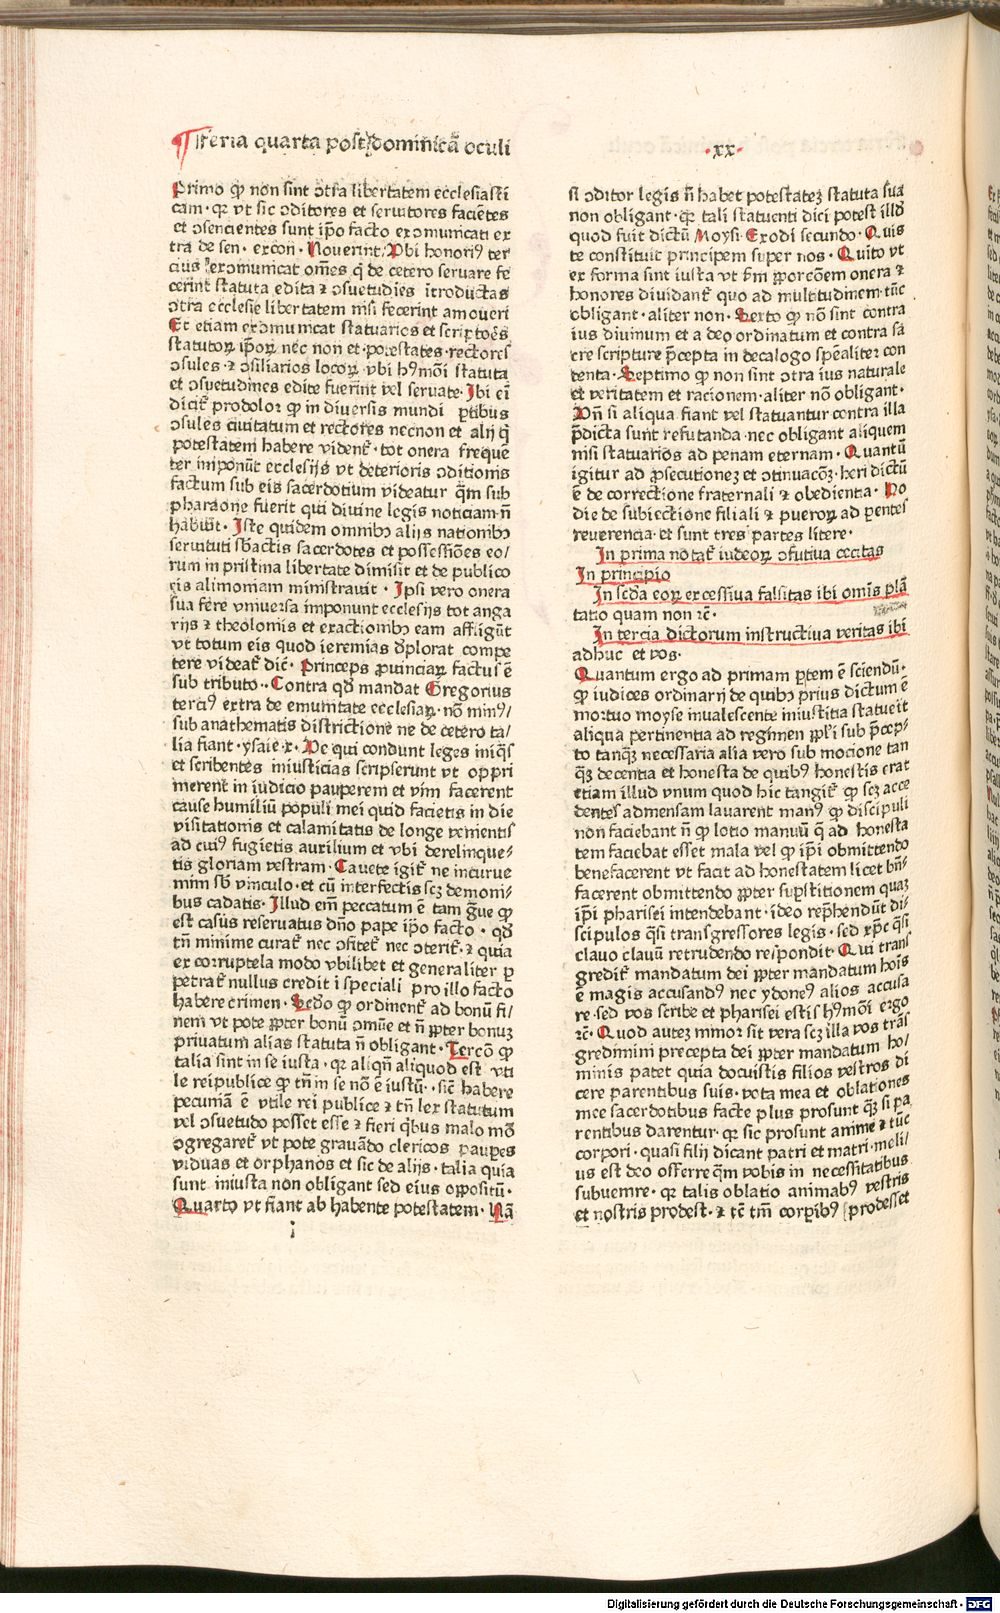 Feria quarta post dominicã oculi
·xx·
Primo ꝙ non sint ↄtra libertatem ecclesiasti
cam· qꝛ vt sic ↄditores et seruitores faciẽtes
et ↄsencientes sunt ip̃o facto excõmunicati ex
tra de sen· excon· Nouerint· Vbi honoriꝰ ter
cius excõmunicat om̃es q̃ de cetero seruare fe
cerint statuta edita ⁊ ↄsuetudĩes ĩtroductas
ↄtra ecclesie libertatem nisi fecerint amoueri
Et etiam excõmunicat statuarios et scriptores
statutoꝝ ip̃oꝝ nec non et potestates· rectores
ↄsules· ⁊ ↄsiliarios locoꝝ vbi hꝰmõi statuta
et ↄsuetudines edite fuerint vel seruate· Ibi eĩ
dicit᷑ prodolor ꝙ in diuersis mundi ꝑtibus
ↄsules ciuitatum et rectores necnon et alij q̃
potestatem habere vident᷑· tot onera frequẽ
ter imponũt ecclesijs vt deterioris ↄditionis
factum sub eis sacerdotium videatur q̃m sub
pharaone fuerit qui diuine legis noticiam ñ
habuit· Iste quidem omnibꝰ alijs nationibꝰ
seruituti sb̃actis sacerdotes et possessiões eo/
rum in pristina libertate dimisit et de publico
eis alimoniam ministrauit· Ipsi vero onera
sua fere vniuersa imponunt ecclesijs tot anga
rijs ⁊ theolomis et exactionibꝰ eam affligũt
vt totum eis quod ieremias d̃plorat compe
tere videat᷑ dic̃· Princeps ꝓuinciaꝝ factus ẽ
sub tributo·· Contra qd̃ mandat Gregorius
terciꝰ extra de emunitate ecclesiaꝝ· nõ minꝰ/
sub anathematis districtione ne de cetero ta/
lia fiant· ysaie·x· Ve qui condunt leges iniq̃s
et scribentes iniusticias scripserunt vt oppri
merent in iudicio pauperem et vim facerent
cause humiliũ populi mei quid facietis in die
visitationis et calamitatis de longe venientis
ad cuiꝰ fugietis auxilium et vbi derelinque/
tis gloriam vestram· Cauete igit᷑ ne incurue
mini sb̃ vinculo· et cũ interfectis scz demoni/
bus cadatis· Illud em̃ peccatum ẽ tam g̃ue ꝙ
est casus reseruatus dño pape ip̃o facto· qd̃
tñ minime curat᷑ nec ↄfitet᷑ nec ↄterit᷑· ⁊ quia
ex corruptela modo vbilibet et generaliter ꝑ
petrat᷑ nullus credit ĩ speciali pro illo facto
habere crimen· Sedo ꝙ ordinent᷑ ad bonũ fi/
nem vt pote ꝓpter bonũ ↄmũe et ñ ꝓpter bonuz
priuatum alias statuta ñ obligant· Tercõ ꝙ
talia sint in se iusta· qꝛ aliqñ aliquod est vti
le reipublice ꝙ tñ in se nõ ẽ iustũ·· sic̃ habere
pecuniã ẽ vtile rei publice ⁊ tñ lex statutum
vel ↄsuetudo posset esse ⁊ fieri q̃bus malo mõ
ↄgregaret᷑ vt pote grauãdo clericos pauꝑes
viduas et orphanos et sic de alijs· talia quia
sunt iniusta non obligant sed eius oppositũ·
Quarto vt fiant ab habente potestatem· Nã
i
si ↄditor legis ñ habet potestatez statuta sua
non obligant· qꝛ tali statuenti dici potest illd̃
quod fuit dictũ Moysi· Exodi secundo· Quis
te constituit principem super nos· Quito vt
ex forma sint iusta vt s̃m ꝓporcõem onera ⁊
honores diuidant᷑ quo ad multitudinem· tũc
obligant· aliter non· Sexto ꝙ nõ sint contra
ius diuinum et a deo ordinatum et contra sa
cre scripture p̃cepta in decalogo sp̃ealiter con
tenta· Septimo ꝙ non sint ↄtra ius naturale
et veritatem et racionem· aliter nõ obligant·
Vñ si aliqua fiant vel statuantur contra illa
p̃dicta sunt refutanda· nec obligant aliquem
nisi statuarios ad penam eternam· Quantũ
igitur ad ꝓsecutionez et ↄtinuacõz· heri dictũ
ẽ de correctione fraternali ⁊ obedientia· Ho
die de subiectione filiali ⁊ pueroꝝ ad ꝑentes
reuerencia· et sunt tres partes litere·
In prima notat᷑ iudeoꝝ ↄfutiua cecitas
In principio
In sec̃da eoꝝ excessiua falsitas ibi omĩs plã
tatio quam non ⁊c̃·
In tercia dictorum instructiua veritas ibi
adhuc et vos·
Quantum ergo ad primam ꝑtem ẽ sciendũ·
ꝙ iudices ordinarij de quibꝰ prius dictum ẽ
mortuo moyse inualescente iniustitia statuerũt
aliqua pertinentia ad regimen ppl̃i sub p̃cep/
to tanq̃z necessaria alia vero sub mocione tan
q̃z decentia et honesta de quibꝰ honestis erat
etiam illud vnum quod hic tangit᷑ ꝙ scz acce
dentes admensam lauarent manꝰ ꝙ discipuli
non faciebant ñ ꝙ lotio manuũ q̃ ad honesta
tem faciebat esset mala vel ꝙ ip̃i obmittendo
benefacerent vt facit ad honestatem licet bñ
facerent obmittendo ꝓpter suꝑstitionem quaz
ip̃i pharisei intendebant· ideo rep̃hendũt di/
scipulos q̃si transgressores legis· sed xp̃c q̃si
clauo clauũ retrudendo respondit· Qui trans
gredit᷑ mandatum dei ꝓpter mandatum hoĩs
ẽ magis accusandꝰ nec ydoneꝰ alios accusa
re· sed vos scribe et pharisei estis hꝰmõi ergo
⁊c̃· Quod autez minor sit vera scz illa vos trãs
gredimini precepta dei ꝓpter mandatum ho/
minis patet quia docuistis filios vestros di
cere parentibus suis· vota mea et oblationes
mee sacerdotibus facte plus prosunt q̃z si pa
rentibus darentur· qꝛ sic prosunt anime ⁊ tũc
corpori· quasi filij dicant patri et matri· meli/
us est deo offerre q̃m vobis in necessitatibus
subuenire· qꝛ talis oblatio animabꝰ vestris
et nostris prodest· ⁊ tẽ tm̃ corꝑibꝰ prodesset